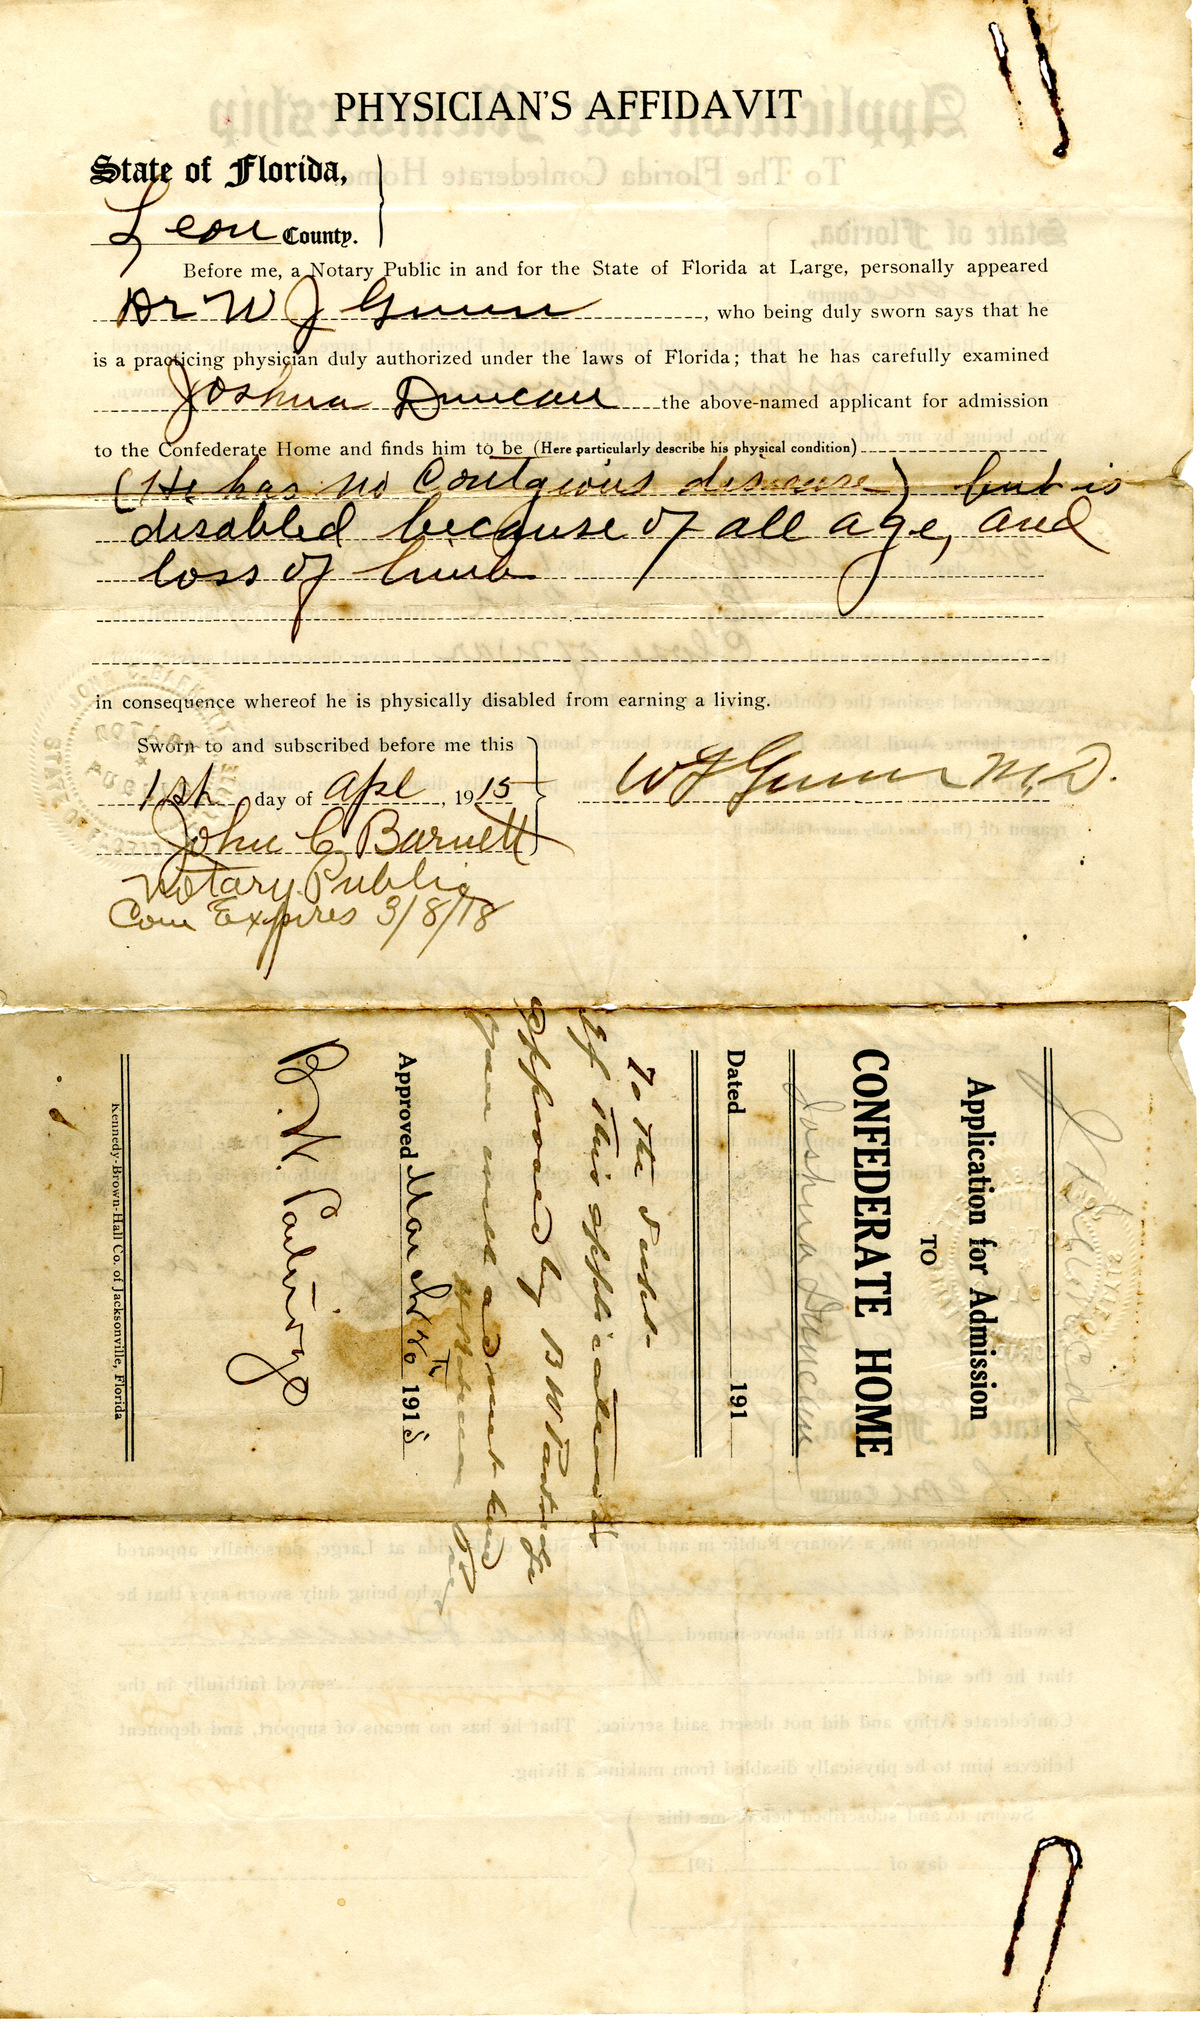 PHYSICIAN'S AFFIDAVIT
State of Florida,
Leon County.
Before me, a Notary Public in and for the State of Florida at Large, personally appeared
Dr W J Gunn, who being duly sworn says that he
is a practicing physician duly authorized under the laws of Florida; that he has carefully examined
Joshua Duncan the above-named applicant for admission
to the Confederate Home and finds him to be (Here particularly describe his physical condition)
(He has no Contgious disease) but is
disabled because of all age, and
loss of limb
in consequence whereof he is physically disabled from earning a living.
Sworn to and subscribed before me this
1st day of Apl, 1915
W J Gunn M.D.
John C Barnett
Notary Public
Com Expires 3/8/18
Application for Admission
TO
CONFEDERATE HOME
Joshua Duncan
Dated 191
To the Supt-
If this application is
approved by B W Partridge
you will admit him
Approved March 30th 1915
B. W. Partridge
Kennedy-Brown-Hall Co. of Jacksonville, Florida